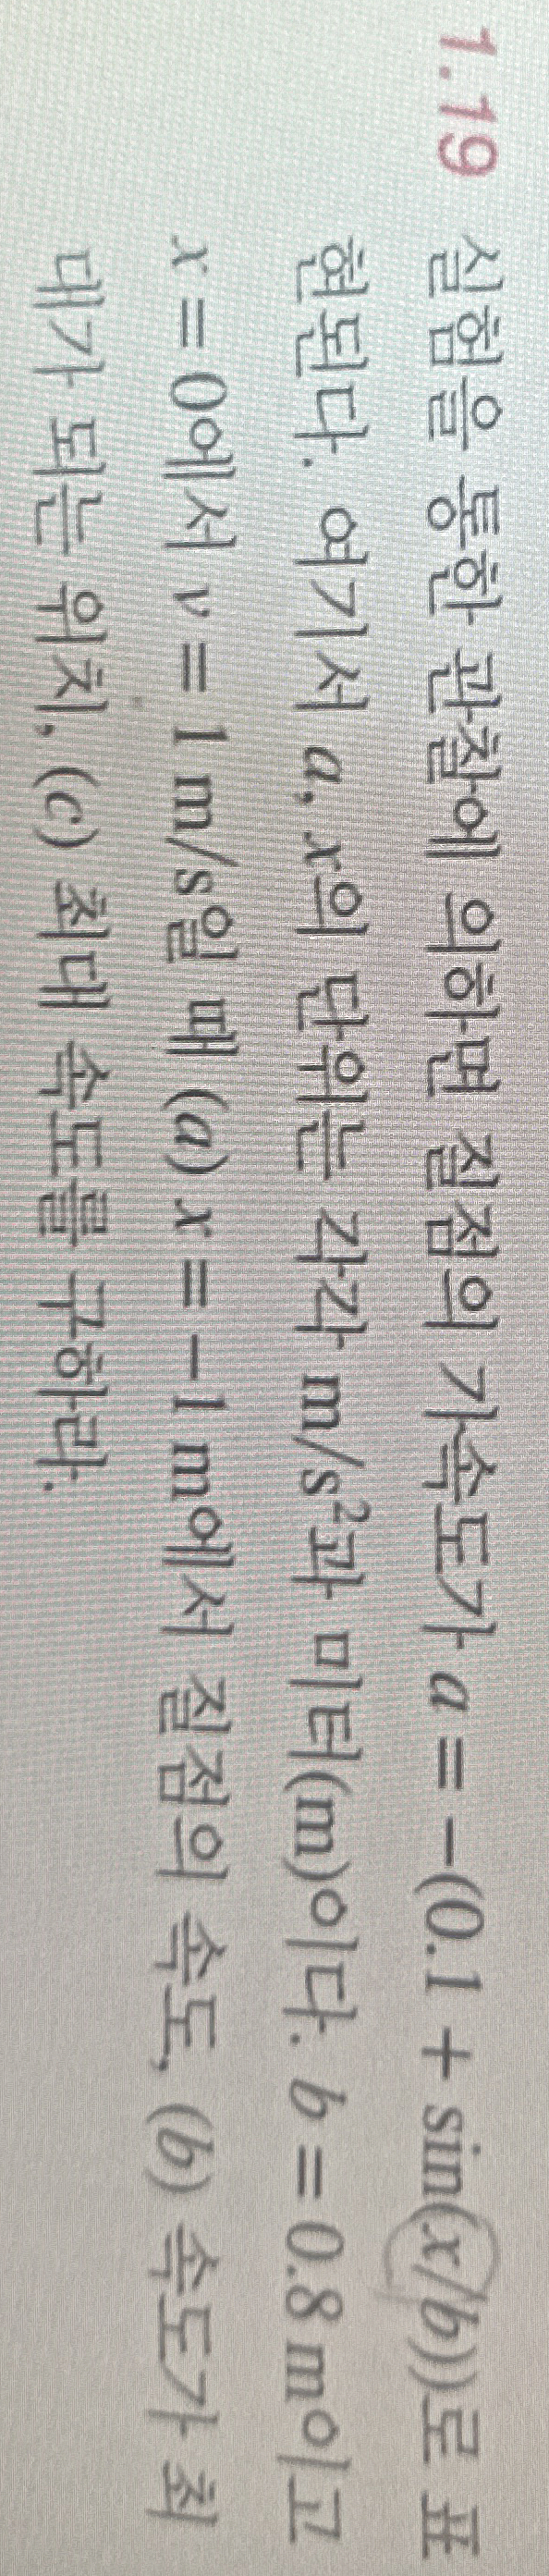 1.19 실험을 통한 관찰에 의하면 질점의 가속도가 a = −(0.1 + sin(x/b))로 표
현된다. 여기서 a, x의 단위는 각각 m/s²과 미터(m)이다. b = 0.8 m이고
x = 0에서 v = 1 m/s일 때 (a) x = −1 m에서 질점의 속도, (b) 속도가 최
대가 되는 위치, (c) 최대 속도를 구하라.